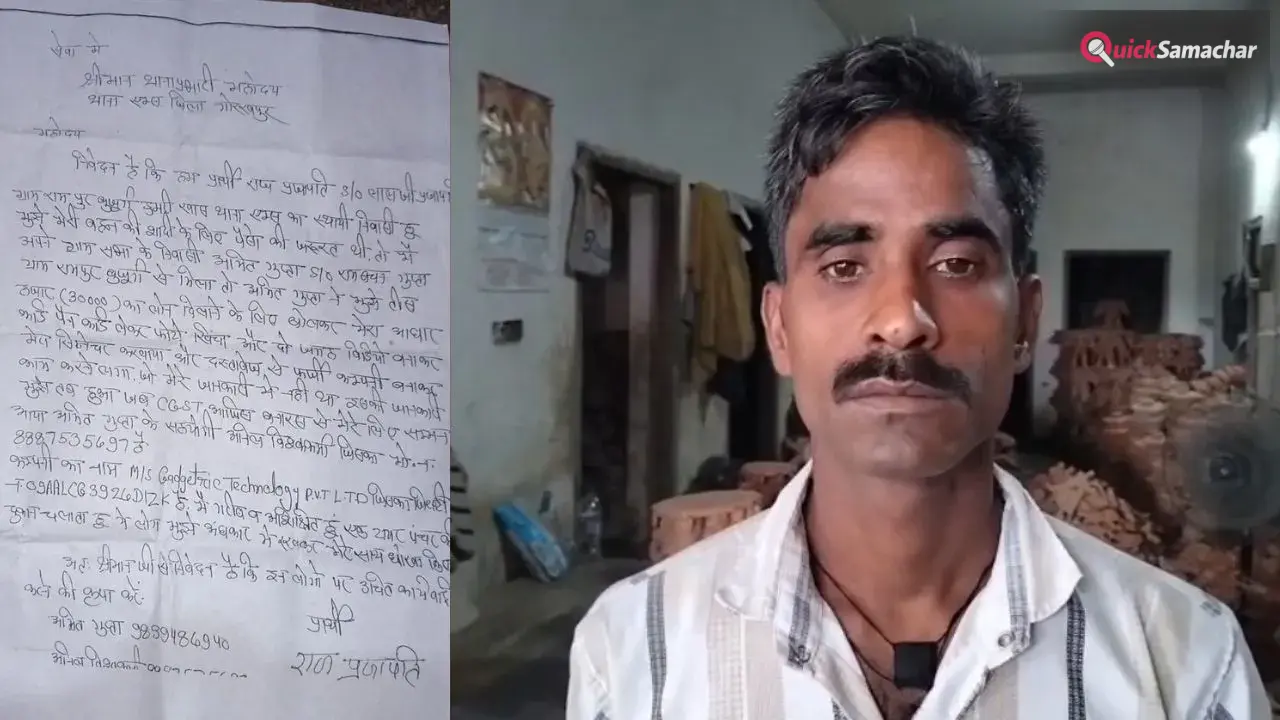 सेवा मे
श्रीमान थानाप्रभारी महोदय
थाना एम्स जिला गोरखपुर
महोदय
निवेदन है कि हम प्रार्थी राज प्रजापति S/o लाल जी प्रजापति
ग्राम रामपुर डुमरी खास थाना एम्स का स्थायी निवासी हू
मुझे मेरी बहन की शादी के लिए पैसो की जरूरत थी, तो मै
अपने ग्राम सभा के निवासी अमित गुप्ता S/o गुप्ता
ग्राम रामपुर से मिला तो अमित गुप्ता ने मुझे तीस
हजार (30000) का लोन दिलाने के लिए बोलकर मेरा आधार
कार्ड पैन कार्ड लेकर फोटो खिंचा और दो जगह विडियो बनाकर
मेरा सिग्नेचर करवाया और दस्तावेज से फर्जी कम्पनी बनाकर
काम करने लगा. जो मेरे जानकारी मे नही था इसकी जानकारी
मुझे तब हुआ जब CGST आफिस बनारस से मेरे लिए सम्मन
आया अमित गुप्ता के सहयोगी अनिल विश्वकर्मा जिसका मो. न.
8887535697 है
कम्पनी का नाम M/s Gadgetric Technology P.V.T L.T.D जिसका जिएसटी
09AALCG3926D1ZK है, मै गरीब व अशिक्षित हूं एक टायर पंचर की
दुकान चलाता हू ये लोग मुझे अंधकार मे रखकर मेरे साथ धोखा किए
अतः श्रीमान जी से निवेदन है कि इन लोगो पर उचित कार्यवाही
करने की कृपा करें.
अमित गुप्ता 9839486940
प्रार्थी
अनिल विश्वकर्मा
राज प्रजापति
QuickSamachar